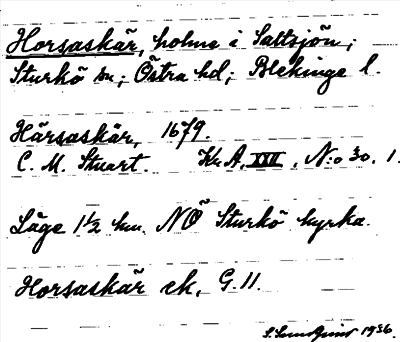 Horsaskär, holme i Saltsjön;
Sturkö sn; Östra hd; Blekinge l.
Härsaskär, 1679.
C. M. Stuart. Kr. A. XXII, N:o 30. 1.
Läge 1 1/2 km. NÖ Sturkö kyrka.
Horsaskär ek. G. 11.
S. Sundqvist 1936.